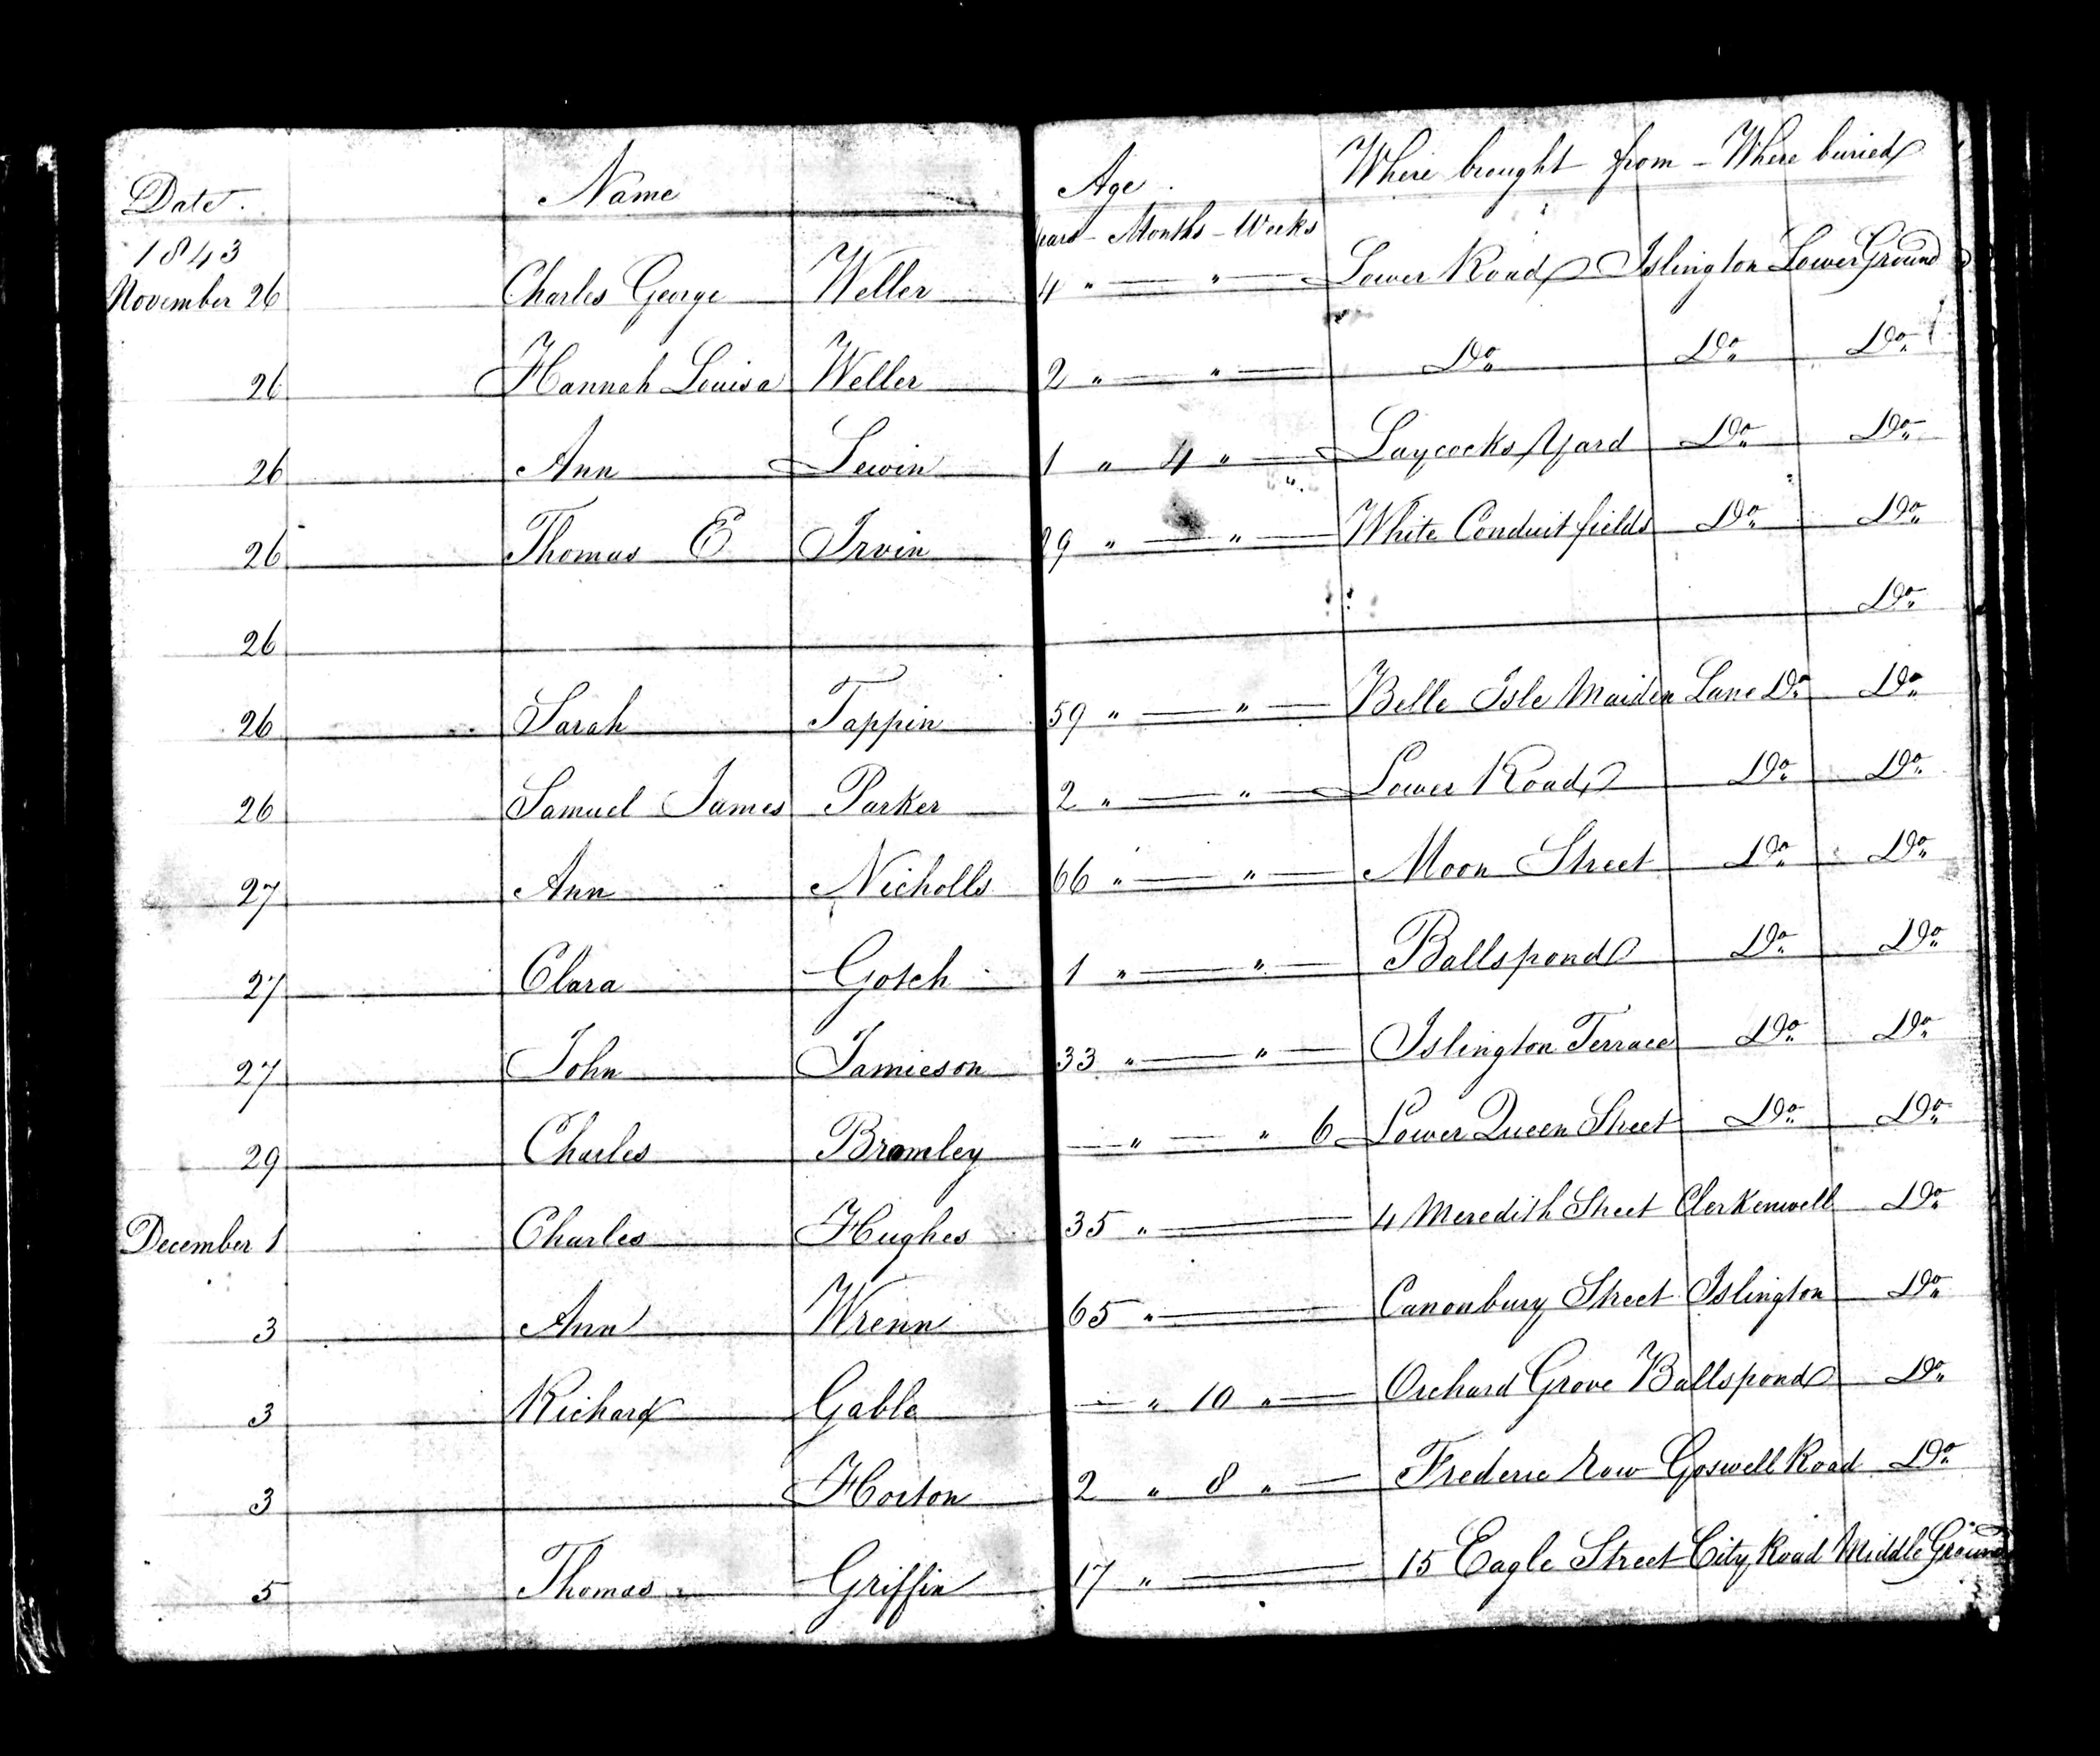 Date. Name Age. Where brought from - Where buried
1843 Years - Months - Weeks
November 26 Charles George Weller 4 " — " — Lower Road Islington Lower Ground
26 Hannah Louisa Weller 2 " — " — Do Do Do
26 Ann Lewin 1 " 4 " — Laycocks Yard Do Do
26 Thomas E Irvin 29 " — " — White Conduit fields Do Do
26 Do
26 Sarah Tappin 59 " — " — Belle Isle Maiden Lane Do Do
26 Samuel James Parker 2 " — " — Lower Road Do Do
27 Ann Nicholls 66 " — " — Moon Street Do Do
27 Clara Gotch 1 " — " — Ballspond Do Do
27 John Jamieson 33 " — " — Islington Terrace Do Do
29 Charles Bromley — " — " 6 Lower Queen Street Do Do
December 1 Charles Hughes 35 " — 4 Meredith Street Clerkenwell Do
3 Ann Wrenn 65 " — Canonbury Street Islington Do
3 Richard Gable — " 10 " — Orchard Grove Ballspond Do
3 Horton 2 " 8 " — Frederic Row Goswell Road Do
5 Thomas Griffin 17 " — 15 Eagle Street City Road Middle Ground